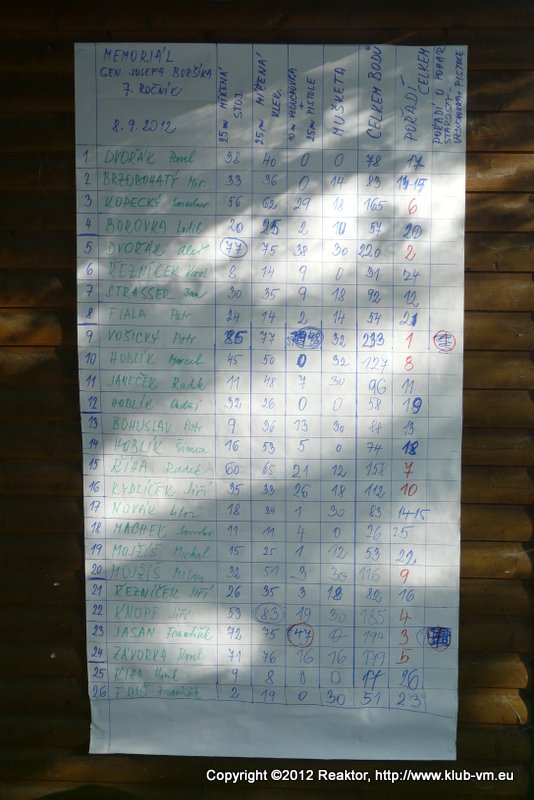 MEMORIÁL
GEN. JOSEFA BURŠÍKA
7. ROČNÍK
8.9.2012
25m MÍŘENÁ STOJ.
25m MÍŘENÁ KLEK.
10m VZDUCHOVKA + 25m PISTOLE
MUŠKETA
CELKEM BODŮ
POŘADÍ CELKEM
POŘADÍ O POHÁR STAROSTY VZDUCHOVKA + PISTOLE
1 DVOŘÁK Pavel 38 40 0 0 78 17
2 BRZOBOHATÝ Mir. 33 36 0 14 83 14-15
3 KOPECKÝ Jaroslav 56 62 29 18 165 6
4 BOROVKA 20 25 2 10 57 20
5 DVOŘÁK Aleš 77 75 38 30 220 2
6 ŘEZNÍČEK Karel 8 14 9 0 31 24
7 STRASSER Jan 30 35 9 18 92 12
8 FIALA Petr 24 14 2 14 54 21
9 VOŠICKÝ Petr 85 77 32 233 1 1
10 HOBLÍK Marcel 45 50 0 32 127 8
11 JANEČEK Radek 11 48 7 30 96 11
12 HOBLÍK Ondřej 32 26 0 0 58 19
13 BOHUSLAV Petr 9 36 13 30 88 13
14 HOBLÍK Šimon 16 53 5 0 74 18
15 ŘÍHA Radek 60 65 21 12 158 7
16 KYDLÍČEK Jiří 35 33 26 18 112 10
17 NOVÁK Libor 18 34 1 30 83 14-15
18 MACHEK Jaroslav 11 11 4 0 26 25
19 MOJŽÍŠ Michal 15 25 1 12 53 22
20 MOJŽÍŠ Milan 32 51 3 30 116 9
21 ŘEZNÍČEK Jiří 26 35 3 18 82 16
22 KNOPF Jiří 53 83 19 30 185 4
23 JASAN František 72 75 47 0 194 3
24 ZÁVORKA Pavel 71 76 16 16 179 5
25 ŘÍHA Hynek 9 8 8 0 17 26
26 František 2 19 0 30 51 23
Copyright ©2012 Reaktor, http://www.klub-vm.eu